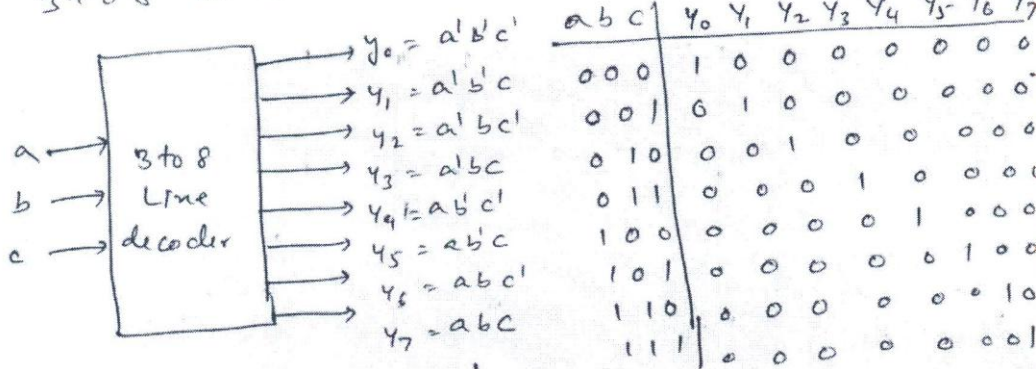 3 to 8
a
b
c
3 to 8
Line
decoder
y₀ = a'b'c'
y₁ = a'b'c
y₂ = a'bc'
y₃ = a'bc
y₄ = ab'c'
y₅ = ab'c
y₆ = abc'
y₇ = abc
a b c | y₀ y₁ y₂ y₃ y₄ y₅ y₆ y₇
0 0 0 | 1 0 0 0 0 0 0 0
0 0 1 | 0 1 0 0 0 0 0 0
0 1 0 | 0 0 1 0 0 0 0 0
0 1 1 | 0 0 0 1 0 0 0 0
1 0 0 | 0 0 0 0 1 0 0 0
1 0 1 | 0 0 0 0 0 1 0 0
1 1 0 | 0 0 0 0 0 0 1 0
1 1 1 | 0 0 0 0 0 0 0 1